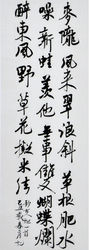 麥隴風来翠浪斜草根肥水
噪新蛙羡他無事雙蝴蝶爛
醉東風野草花